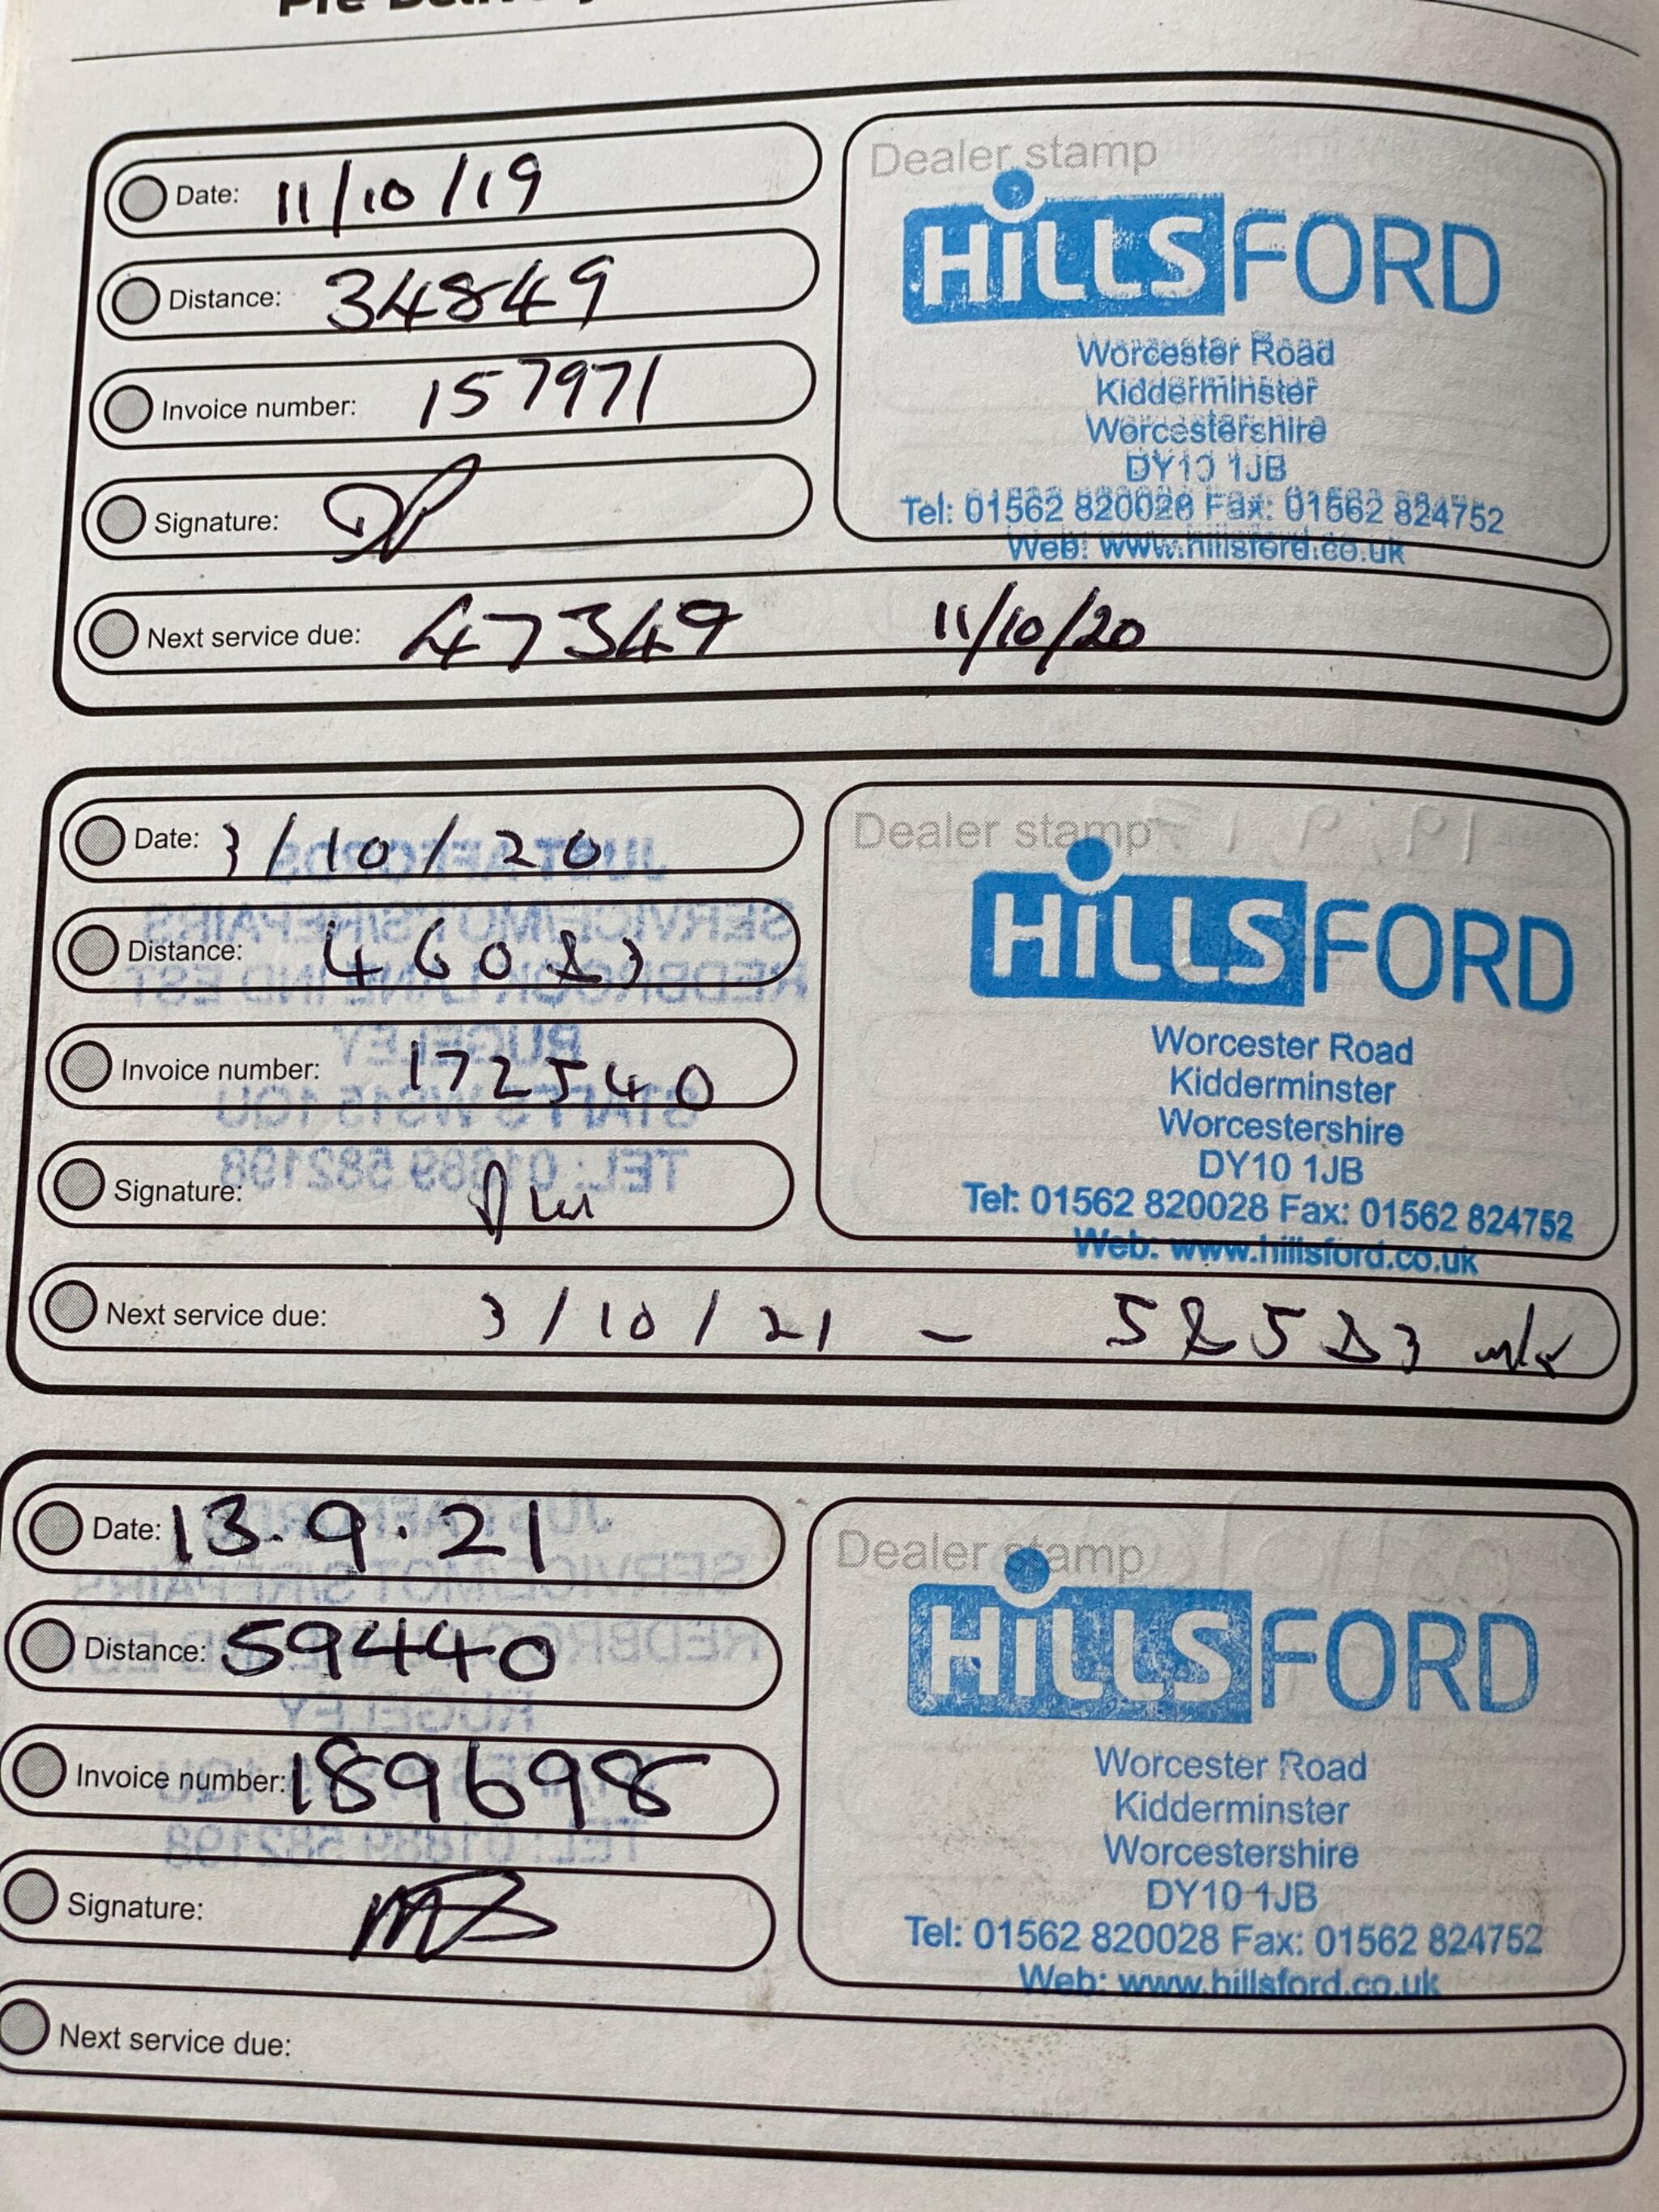 Date: 11/10/19
Distance: 34849
Invoice number: 157971
Signature:
Next service due: 47349 11/10/20
Dealer stamp
HiLLS FORD
Worcester Road
Kidderminster
Worcestershire
DY10 1JB
Tel: 01562 820028 Fax: 01562 824752
Web: www.hillsford.co.uk
Date: 3/10/20
Distance: 46083
Invoice number: 172540
Signature:
Next service due: 3/10/21 - 58583
Dealer stamp
HiLLS FORD
Worcester Road
Kidderminster
Worcestershire
DY10 1JB
Tel: 01562 820028 Fax: 01562 824752
Web: www.hillsford.co.uk
JUST AFFORDS
SERVICE/MOT'S/REPAIRS
REDBROOK LANE IND EST
RUGELEY
STAFFS WS15 1QU
TEL: 01889 582198
Date: 13.9.21
Distance: 59440
Invoice number: 189698
Signature:
Next service due:
Dealer stamp
HiLLS FORD
Worcester Road
Kidderminster
Worcestershire
DY10 1JB
Tel: 01562 820028 Fax: 01562 824752
Web: www.hillsford.co.uk